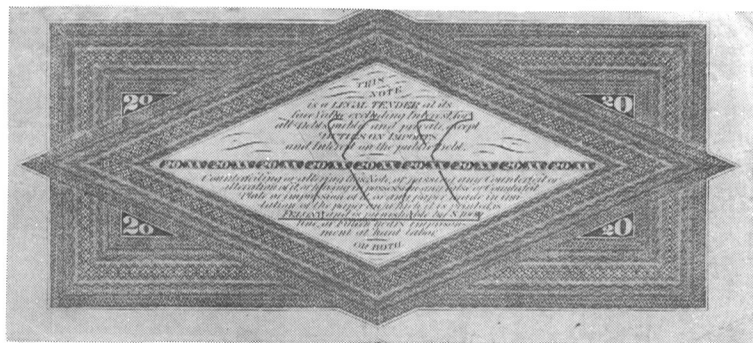 20 20
THIS
NOTE
is a LEGAL TENDER at its
face value excluding Interest, for
all Debts public and private, except
DUTIES ON IMPORTS
and Interest on the public debt.
20 XX 20 XX 20 XX 20 XX 20 XX 20 XX 20 XX 20 XX 20 XX
Counterfeiting or altering this Note, or passing any Counterfeit or
alteration of it, or having in possession any false or Counterfeit
Plate or impression of it, or any paper made in imi-
tation of the paper on which it is printed is
FELONY and is punishable by $
fine, or Imprison-
ment at hard labor
OR BOTH
20 20